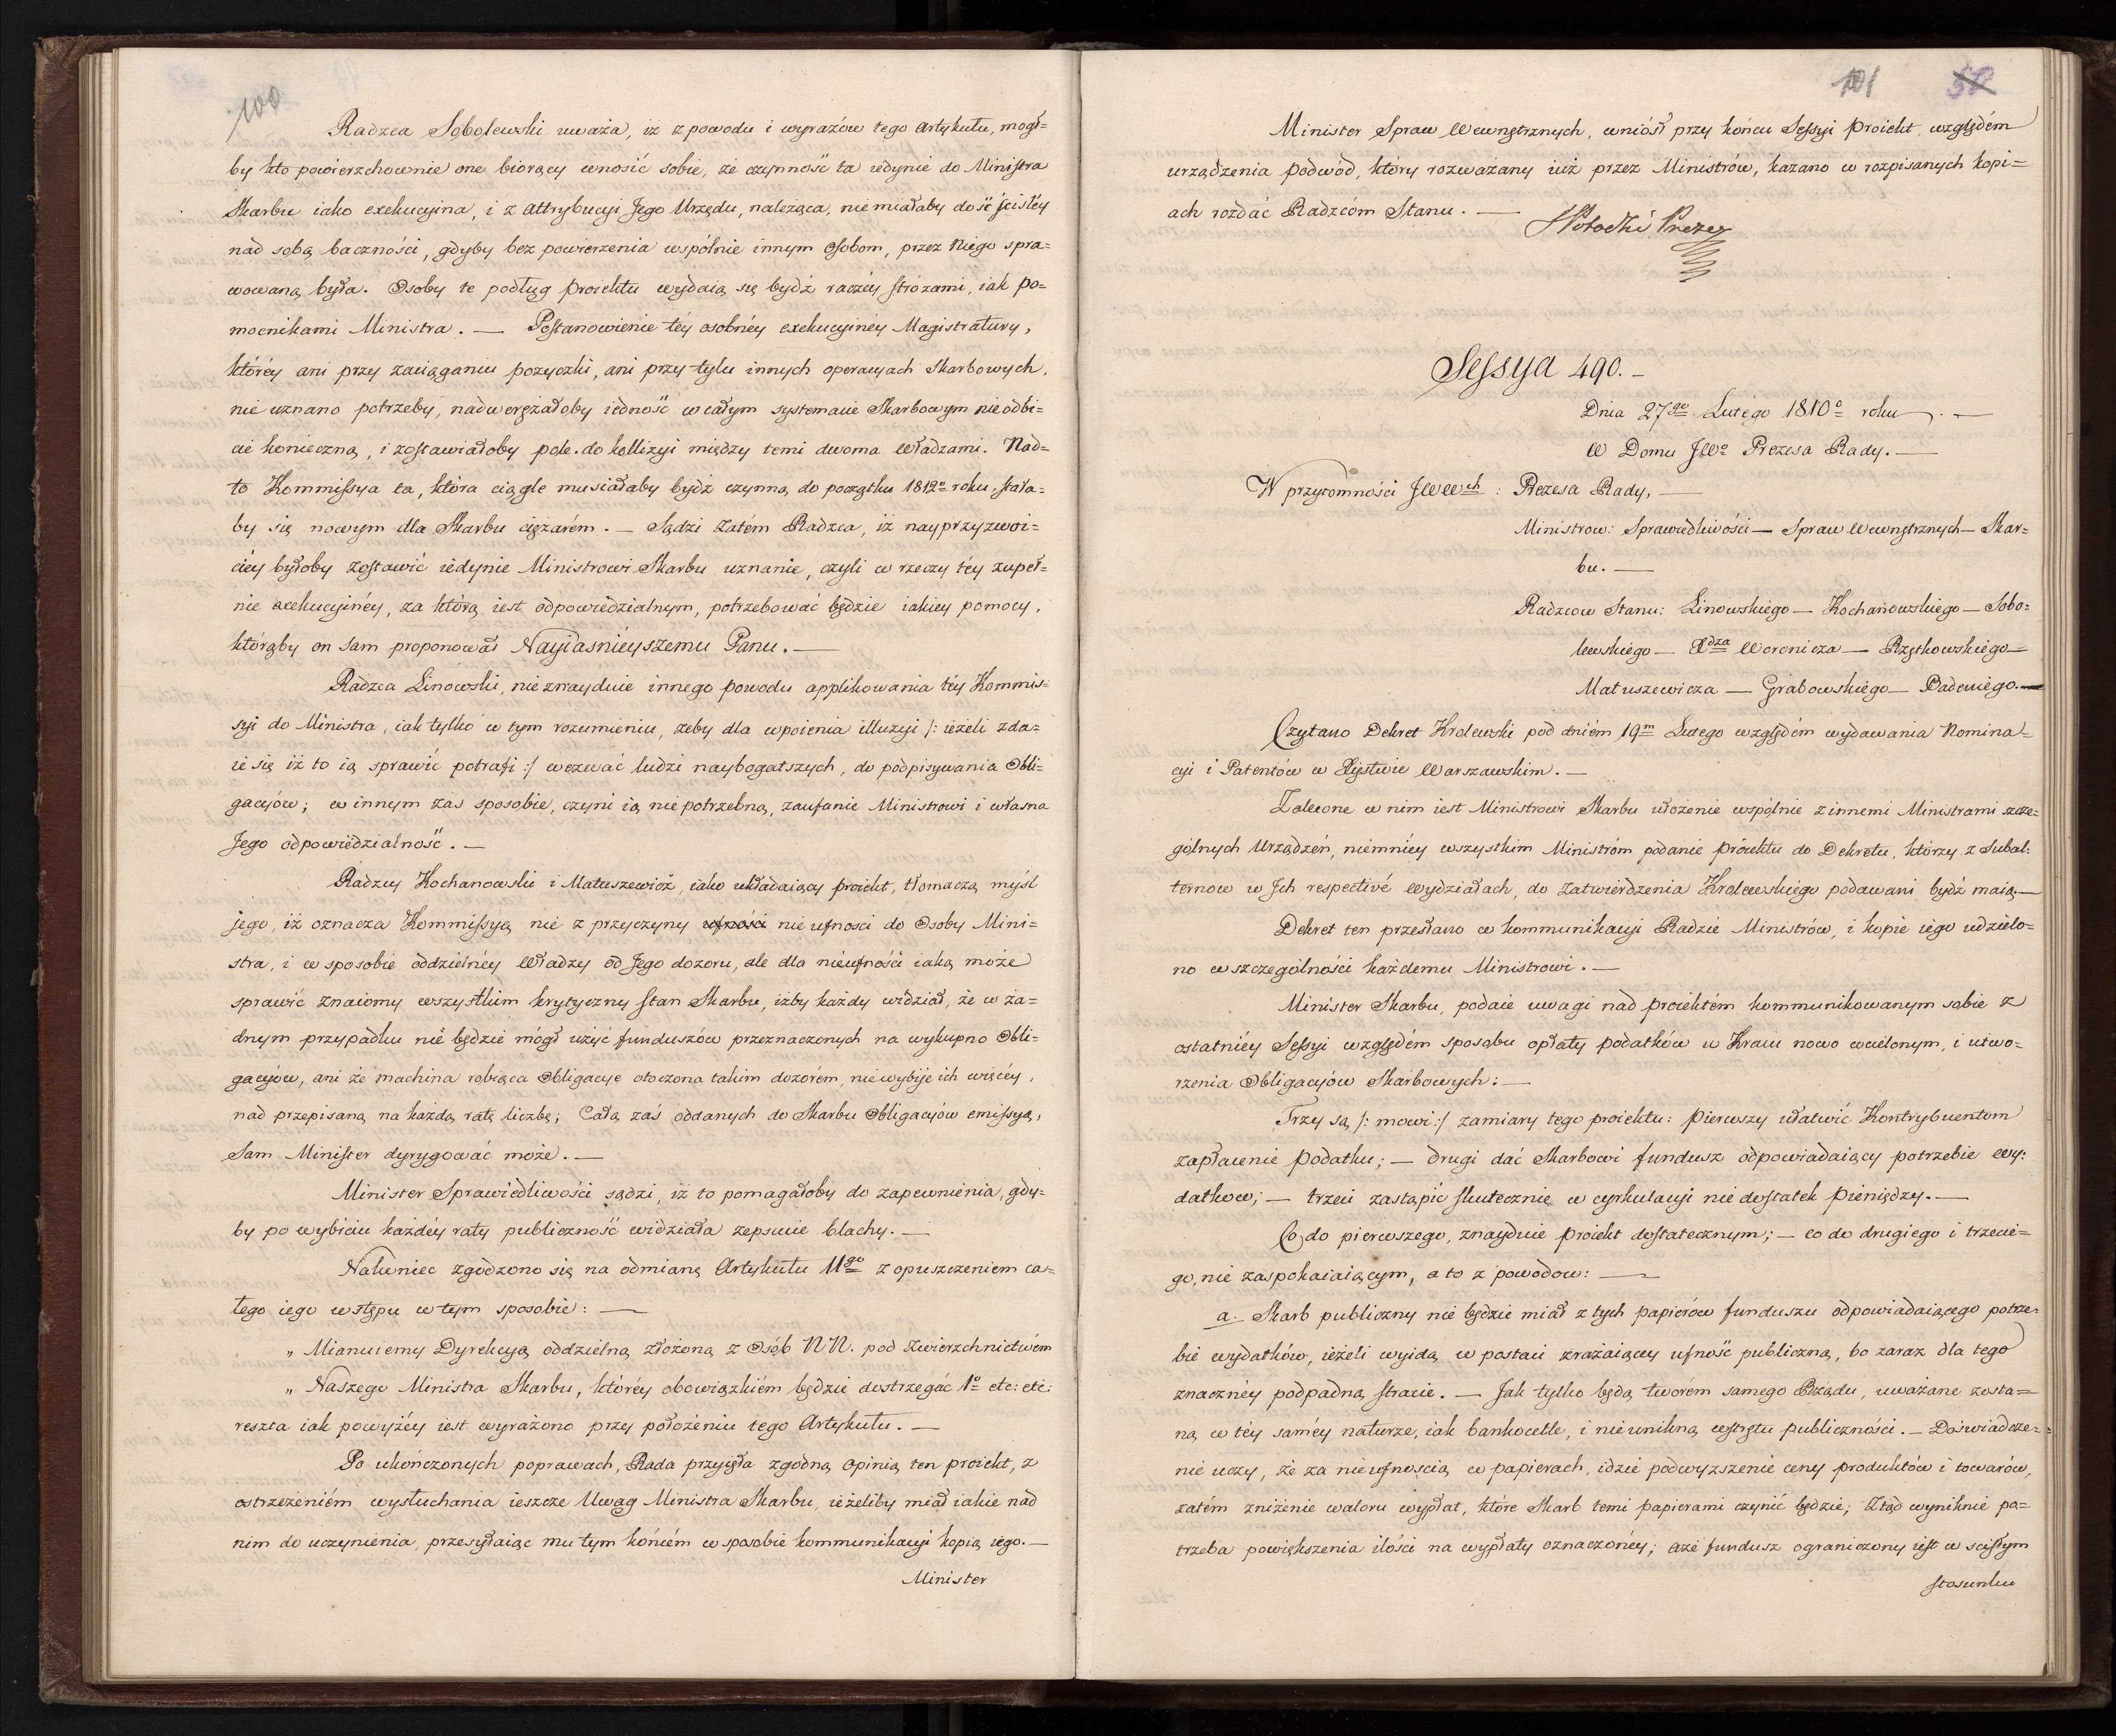 100
Radzca Sobolewski uważa, iż z powodu i wyrazów tego Artykułu, mogł=
by kto powierzchownie one biorący wnosić sobie, że czynność ta iedynie do Ministra
Skarbu iako exekucyina, i z attrybucyi Jego Urzędu, należąca, nie miałaby dość ścisłey
nad sobą baczności, gdyby bez powierzenia wspólnie innym Osobom, przez Niego spra=
wowaną była. Osoby te podług proiektu wydaią się bydź raczéy stróżami, iak po=
mocnikami Ministra. — Postanowienie téy osobnéy exekucyinéy Magistratury,
któréy ani przy zaciąganiu pożyczki, ani przy tylu innych operacyach Skarbowych,
nie uznano potrzeby, nadwerężałoby iedność w całym systemacie Skarbowym nieodbi=
cie konieczną, i zostawiałoby pole do kollizyi między temi dwoma Władzami. Nad=
to Kommissya ta, która ciągle musiałaby bydź czynną do początku 1812º roku, stała=
by się nowym dla Skarbu ciężarém. — Sądzi zatém Radzca, iż nayprzyzwoi=
ciéy byłoby zostawić iedynie Ministrowi Skarbu uznanie, czyli w rzeczy téy zupeł=
nie exekucyinéy, za którą iest odpowiedzialnym, potrzebować będzie iakiey pomocy,
którąby on sam proponował Nayiaśnieyszemu Panu. —
Radzca Linowski, nie znayduie innego powodu applikowania téy Kommis=
syi do Ministra, iak tylko w tym rozumieniu, żeby dla wpoienia illuzyi /: ieżeli zda=
ie się iż to ią sprawić potrafi :/ wezwać ludzi naybogatszych, do podpisywania Obli=
gacyów; w innym zaś sposobie, czyni ią niepotrzebną, zaufanie Ministrowi i własna
Jego odpowiedzialność. —
Radzcy Kochanowski i Matuszewicz, iako układaiący proiekt, tłomaczą myśl
jego, iż oznacza Kommissyą nie z przyczyny ufności nieufnosci do Osoby Mini=
stra, i w sposobie oddzielnéy Władzy od Jego dozoru, ale dla nieufności iaką może
sprawić znaiomy wszystkim krytyczny stan Skarbu, iżby każdy widział, że w ża=
dnym przypadku nie będzie mógł użyć funduszów przeznaczonych na wykupno Obli=
gacyów, ani że machina robiąca Obligacye otoczona takim dozorém, nie wybiie ich więcéy,
nad przepisaną na każdą ratę liczbę; Całą zaś oddanych do Skarbu Obligacyów emissyą,
Sam Minister dyrygować może. —
Minister Sprawiedliwości sądzi, iż to pomagałoby do zapewnienia, gdy=
by po wybiciu każdéy raty publiczność widziała zepsucie blachy. —
Nakoniec zgodzono się na odmianę Artykułu 11go z opuszczeniem ca=
łego iego wstępu w tym sposobie: —
„ Mianuiemy Dyrekcyą oddzielną złożoną z Osób N N. pod Zwierzchnictwém
„ Naszego Ministra Skarbu, któréy obowiązkiém będzie dostrzegać 1º etc: etc:
reszta iak powyżéy iest wyrażono przy położeniu tego Artykułu. —
Po ukończonych poprawach, Rada przyięła zgodną opinią ten proiekt, z
ostrzeżeniém wysłuchania ieszcze Uwag Ministra Skarbu, ieżeliby miał iakie nad
nim do uczynienia, przesyłaiąc mu tym końcém w sposobie kommunikacyi kopią iego. —
Minister
101
Minister Spraw Wewnętrznych, wniósł przy końcu Sessyi proiekt, względém
urządzenia podwód, który rozważany iuż przez Ministrów, kazano w rozpisanych kopi=
ach rozdać Radzcóm Stanu. —
SPotocki Prezes
Sessya 490. —
Dnia 27go Lutégo 1810º roku. —
W Domu JWo Prezesa Rady. —
W przytomności JWWch: Prezesa Rady, —
Ministrow: Sprawiedliwości — Spraw Wewnętrznych — Skar=
bu. —
Radzcow Stanu: Linowskiego — Kochanowskiego — Sobo=
lewskiego — Xdza Woronicza — Rzętkowskiego —
Matuszewicza — Grabowskiego — Badeniego. —
Czytano Dekret Krolewski pod dniém 19m Lutego względém wydawania Nomina=
cyi i Patentów w Xięstwie Warszawskim. —
Zalecone w nim iest Ministrowi Skarbu ułożenie wspólnie z innemi Ministrami szcze=
gólnych Urządzeń, niemniéy wszystkim Ministróm podanie proiektu do Dekretu, którzy z Subal:
ternow w Ich respectivé Wydziałach, do Zatwierdzenia Krolewskiego podawani bydź maią. —
Dekret ten przesłano w kommunikacyi Radzie Ministrów, i kopie iego udzielo=
no w szczególności każdemu Ministrowi. —
Minister Skarbu, podaie uwagi nad proiektém kommunikowanym sobie z
ostatniéy Sessyi względém sposobu opłaty podatków w Kraiu nowo wcielonym, i utwo=
rzenia Obligacyów Skarbowych: —
Trzy są /: mowi :/ zamiary tego proiektu: pierwszy ułatwić Kontrybuentom
zapłacenie podatku; — drugi dać Skarbowi fundusz odpowiadaiący potrzebie wy:
datkow; — trzeci zastąpić skutecznie w cyrkulacyi niedostatek pieniędzy. —
Co do pierwszego, znayduie proiekt dostatecznym; — co do drugiego i trzecie=
go, nie zaspokaiaiącym, a to z powodow: —
a. Skarb publiczny nie będzie miał z tych papierów funduszu odpowiadaiącego potrze=
bie wydatków, ieżeli wyidą w postaci zrażaiącey ufność publiczną, bo zaraz dla tego
znacznéy podpadną stracie. — Jak tylko będą tworém samego Rządu, uważane zosta=
ną w téy saméy naturze, iak bankocetle, i nie unikną wstrętu publiczności. — Doświadcze=
nie uczy, że za nieufnoscią w papierach, idzie podwyższenie ceny produktów i towarów,
zatém zniżenie waloru wypłat, które Skarb temi papierami czynić będzie; Ztąd wyniknie po=
trzeba powiększenia ilości na wypłaty oznaczonéy; a że fundusz ograniczony iest w scisłym
stosunku